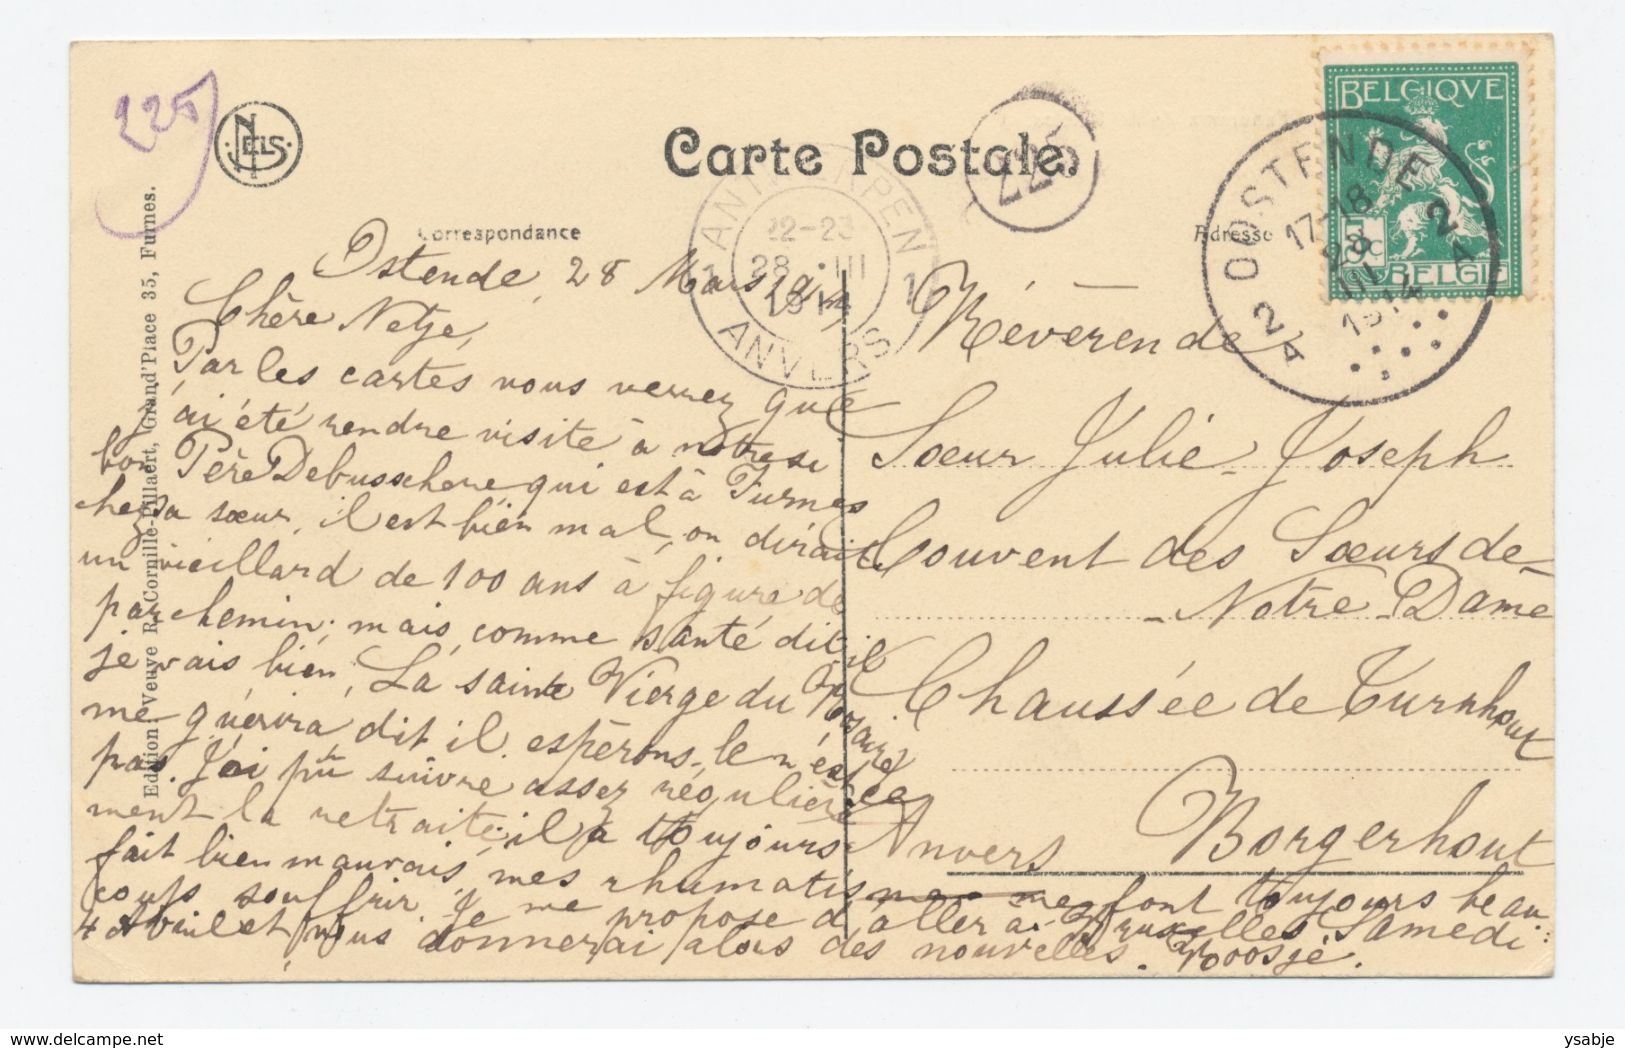 225
NELS
Carte Postale
225
Correspondance
Adresse
BELGIQUE
5c
BELGIE
OOSTENDE
17-18
28
III
1914
2A
2A
ANTWERPEN
22-23
28 III
1914
ANVERS
1
1
Edition : Veuve R. Cornille-Pillaert, Grand'Place 35, Furnes.
Ostende, 28 Mars 1914
Chère Netje,
Par les cartes vous verrez que
j'ai été rendre visite à notre
bon Père Debusschere qui est à Furnes
chez sa sœur, il est bien mal, on dirait
un vieillard de 100 ans à figure de
parchemin; mais comme santé dit il
je vais bien, La sainte Vierge du Rosaire
me guérira dit il. espérons-le n'est ce
pas. J'ai pu suivre assez régulière
ment la retraite; il a toujours
fait bien mauvais, mes rhumatismes me font toujours beau
coup souffrir. Je me propose d'aller à Bruxelles Samedi
4 Avril et vous donnerai alors des nouvelles. Roosje.
Révérende
Soeur Julie-Joseph
Couvent des Soeurs de
Notre-Dame
Chaussée de Turnhout
Borgerhout
Anvers
ysabje